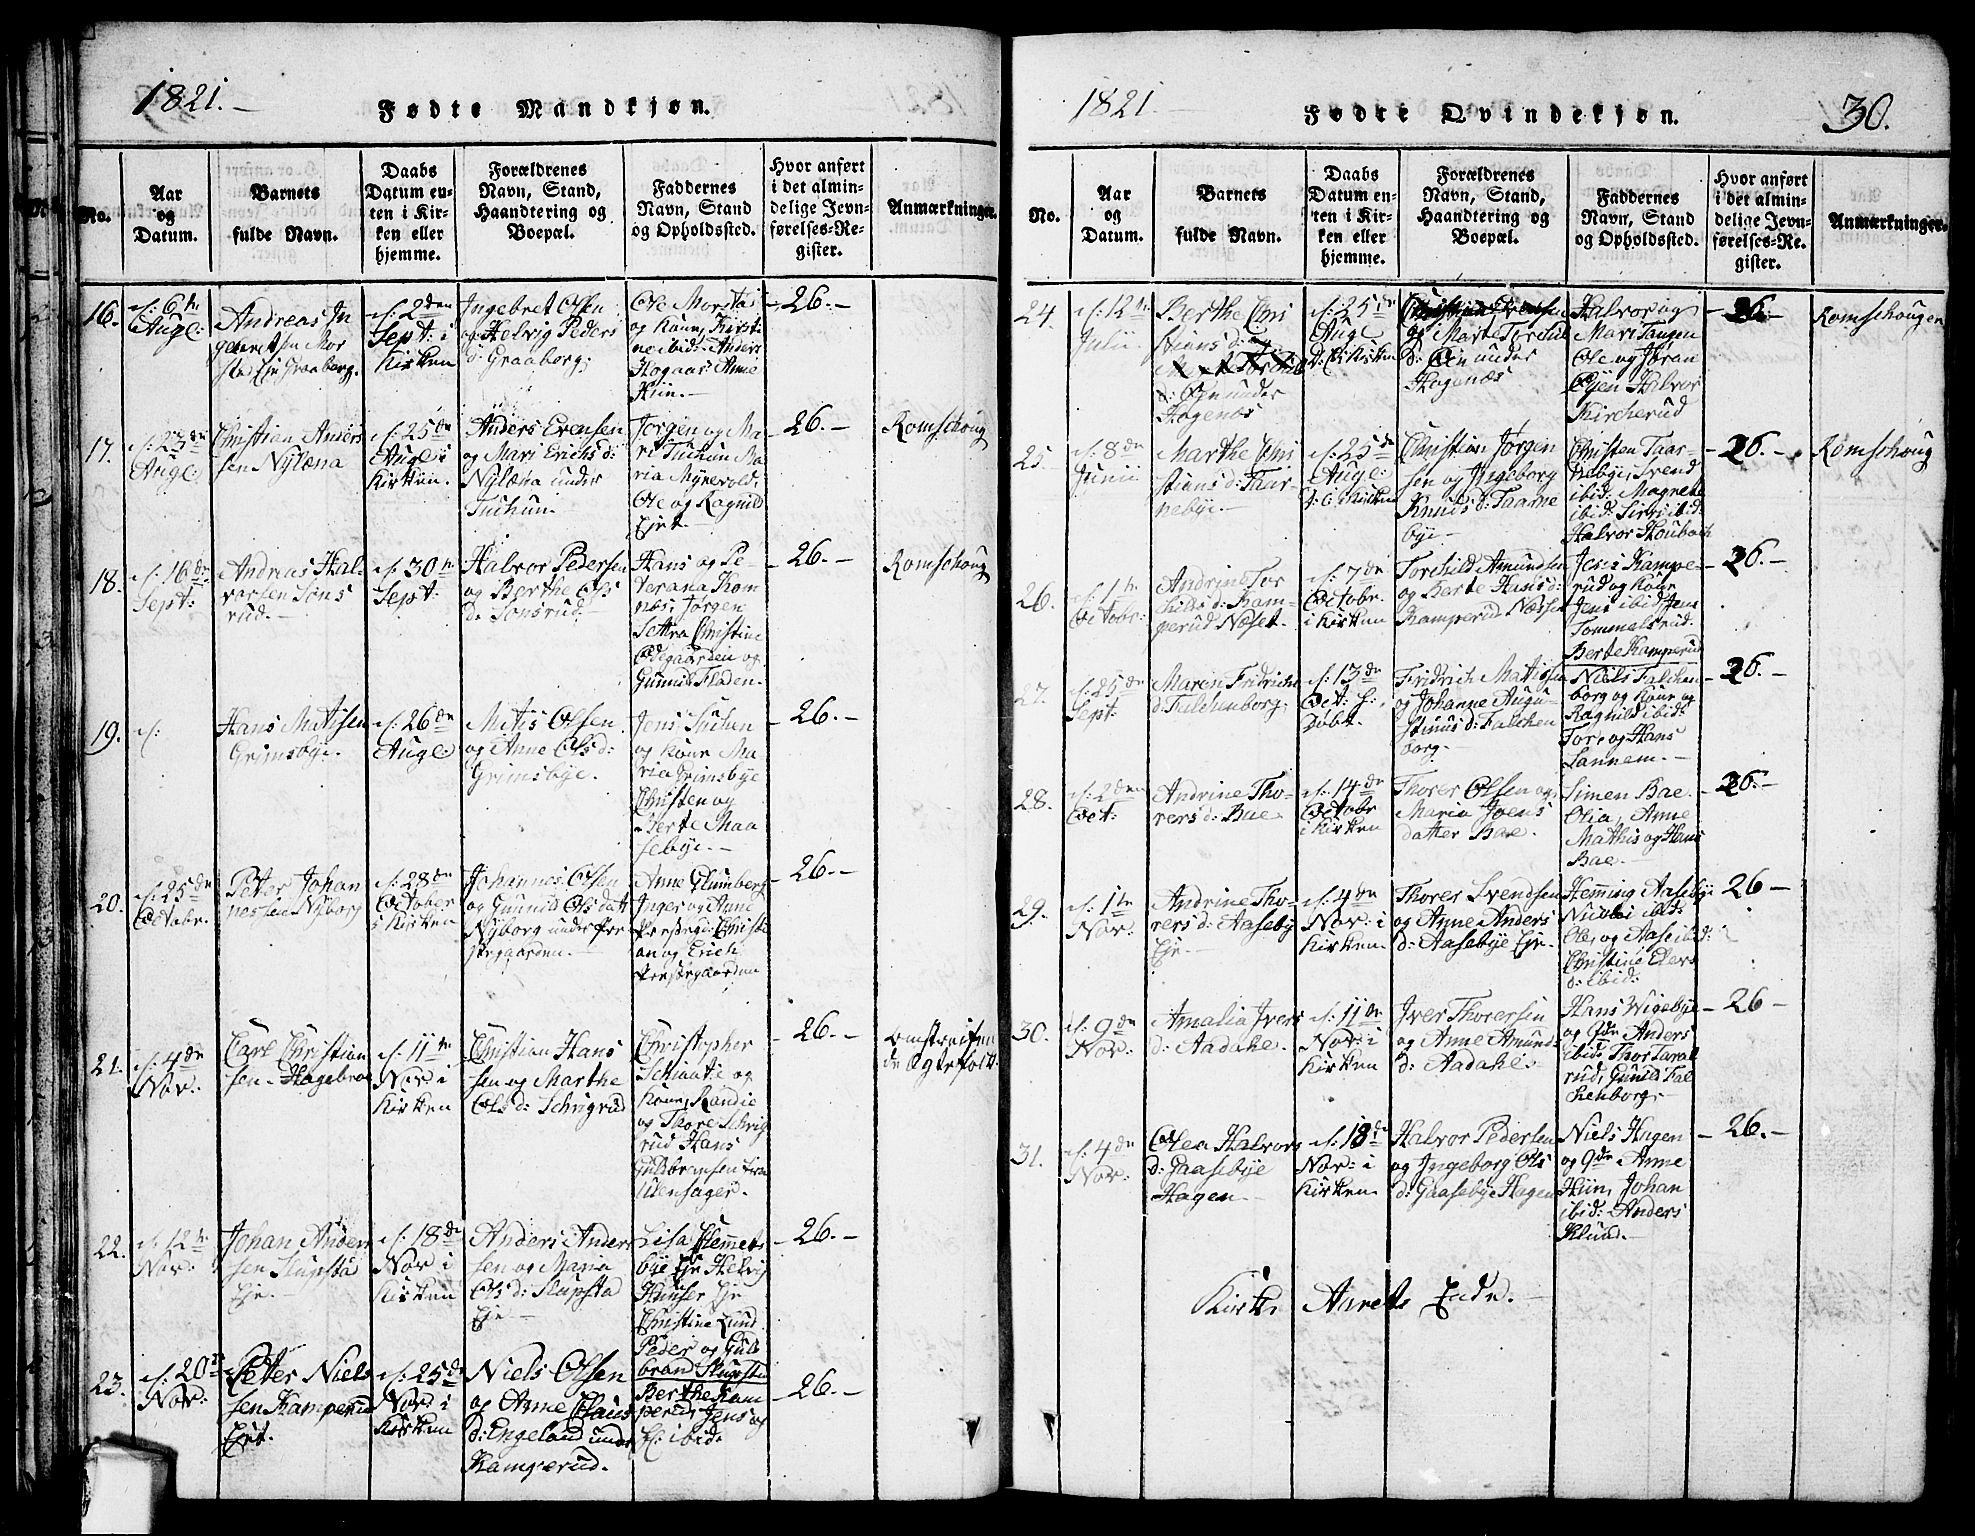 1821.
Fødte Mandkjøn.
No.
Aar
og
Datum.
Barnets
fulde Navn.
Daabs
Datum en-
ten i Kir-
ken eller
hjemme.
Forældrenes
Navn, Stand,
Haandtering og
Boepæl.
Faddernes
Navn, Stand
og Opholdssted.
Hvor anført
i det almin-
delige Jevn-
førelses-Re-
gister.
Anmærkninger.
16.
d: 6te
Augl:
Andreas In
gebretsen Mor
sta Eje Graaborg.
d: 2den
Septl: i
Kirken
Ingebret Olsen
og Helvig Peders
d: Graaborg
Ole Morstad
og Kone, Kirst-
ne ibid: Anders
Hogaas Anne
Hiin.
26.
17.
d: 23de
Augl:
Christian Anders
sen Nylæna
d: 25de
Augl i
Kirken.
Anders Evensen
og Mari Erichs d:
Nylæna under
Tuchun.
Jørgen og Ma-
ri Tuchun Ma
ria Myrevold,
Ole og Ragnild
Ejet.
26.
Romschoug
18.
d: 16de
Sept:
Andreas Hal-
vorsen Sons
rud.
d: 30te
Sept:
Halvor Pedersen
og Berthe Ols
d: Sonsrud
Hans og Pe
terana Kom
næs, Jørgen
Settra Christine
Ødegaarden og
Gunnil Fladen.
26.
Romschoug
19.
d:
Hans Matisen
Grimsbye.
d: 26de
Augl
Matis Olsen
og Anne Ols d:
Grimsbye.
Jens Tuchun
og Kone Ma
ria Grimsbye
Christen og
Berte Maa
sebye.
26.
20.
d: 25de
Octobr.
Petter Johan
nessen Nyborg
d: 28de
October
i Kirken
Johannes Olsen
og Gunnild Ols datt
Nyborg under Pre
stegaarden.
Anne Glumberg
Inger og Anne
Prestegl: Christi
an og Erich
Prestegaarden
26.
21.
d: 4de
Nov:
Carl Christian
sen Hagebraa
d: 11te
Nov: i
Kirken
Christian Hans
sen og Marthe
Ols d: Schrigrud
Christopher
og
Kone, Randie
og Thore Schrig
rud Hans
Guldbransen fra
Ullensager.
26.
omstreifen
de Ægtefolk.
22.
d: 12te
Nov:
Johan Anders
sen Slupsta
Eje.
d: 18de
Nov i
Kirken
Anders Anders
sen og Maria
Ols d: Slupsta
Eje
Lisa Hemnets
bye Eje Helvig
Eje
Christine Lund
Peder og Gul
brand Slupsta
26.
23.
d: 20de
Nov:
Petter Niels
sen Kamperud
Ejet.
d: 25de
Nov: i
Kirken
Niels Olsen
og Anne Claus
d: Engeland under
Kamperud.
Berthe Kam
perud, Jens og
ibid:
26.
1821
Fødte Qvindekjøn.
30.
No.
Aar
og
Datum.
Barnets
fulde Navn.
Daabs
Datum en-
ten i Kir-
ken eller
hjemme.
Forældrenes
Navn, Stand,
Haandtering og
Boepæl.
Faddernes
Navn, Stand
og Opholdssted.
Hvor anført
i det almin-
delige Jevn-
førelses-Re-
gister.
Anmærkninger.
24.
d: 12te
Julii
Berthe Chri
stians d:
d: Øen under
Hogenæs
d: 25de
Augl
d: C. Kirken
og Marte Torchils
d: Øen under
Hogenæs
Halvor og
Mari Tangen
Ole og Jøran
Øjen Halvor
Kircherud
26.
Romschougen
25
d: 8de
Junii
Marthe Chri
stians d: Taar-
nebye.
d: 25de
Augl:
d: C. Kirken
Christian Jørgen
sen og Ingeborg
Knuds d: Taarne
bye.
Christen Taar-
nebye, Svend
ibid: Magnete
ibid: Siri ibid:
Halvor Skoubach
26.
Romschoug
26.
d: 1te
Octobr:
Andrine Tor
kilds d: Kam-
perud Næset.
d: 7de
Octobr.
i Kirken
Torchild Amundsen
og Berte Hans d:
Kamperud Næsset
Jens Kampe-
rud og Kone
Jens ibid: Jens
Tommelsrud.
Berte Kamperud
26.
27.
d: 25de
Sept:
Maren Fridrichs
d: Falchenborg
d: 13de
Oct. H:
Døbt.
Fridrich Matissen
og Johanne Augu-
stinus d: Falchen
borg.
Niels Falchen
borg og Kone og
Ragnild ibid:
Tore og Hans
Lannem.
26.
28.
d: 2den
Oct:
Andrine Tho-
rers d: Bae
d: 14de
Octobr
i Kirken
Thorer Olsen og
Maria Joens
datter Bae.
Simen Bae.
Olia, Anne
Mathis og Hans
Bae.
26.
29.
d: 1te
Nov:
Andrine Tho-
rers d: Aaseby
Eje.
d: 4de
Nov: i
Kirken.
Thorer Svendsen
og Anne Anders
d: Aasebye Eje.
Hemming Aasebye
Nicolai ibid:
Ole, og Aase ibid:
Christine Elers
d: ibid:
26
30.
d: 9de
Nov:
Amalia Ivers
d: Aadahe.
d: 11te
Nov: i
Kirken
Iver Thorersen
og Anne Amunds
d: Aadahe
Hans Wigebye
og Qde Anders
ibid: Thor Taral
rud, Gunild Fal
chenborg.
26
31.
d: 4de
Nov:
Olea Halvors
d: Gaasebye
Hagen.
d: 18de
Nov: i
Kirken.
Halvor Pedersen
og Ingeborg Ols
d: Gaasebye Hagen
Niels Hagen
og Qde Anne
Hiin, Johan
ibid: Anders
Klund.
26.
Kirke Aarets Ende.